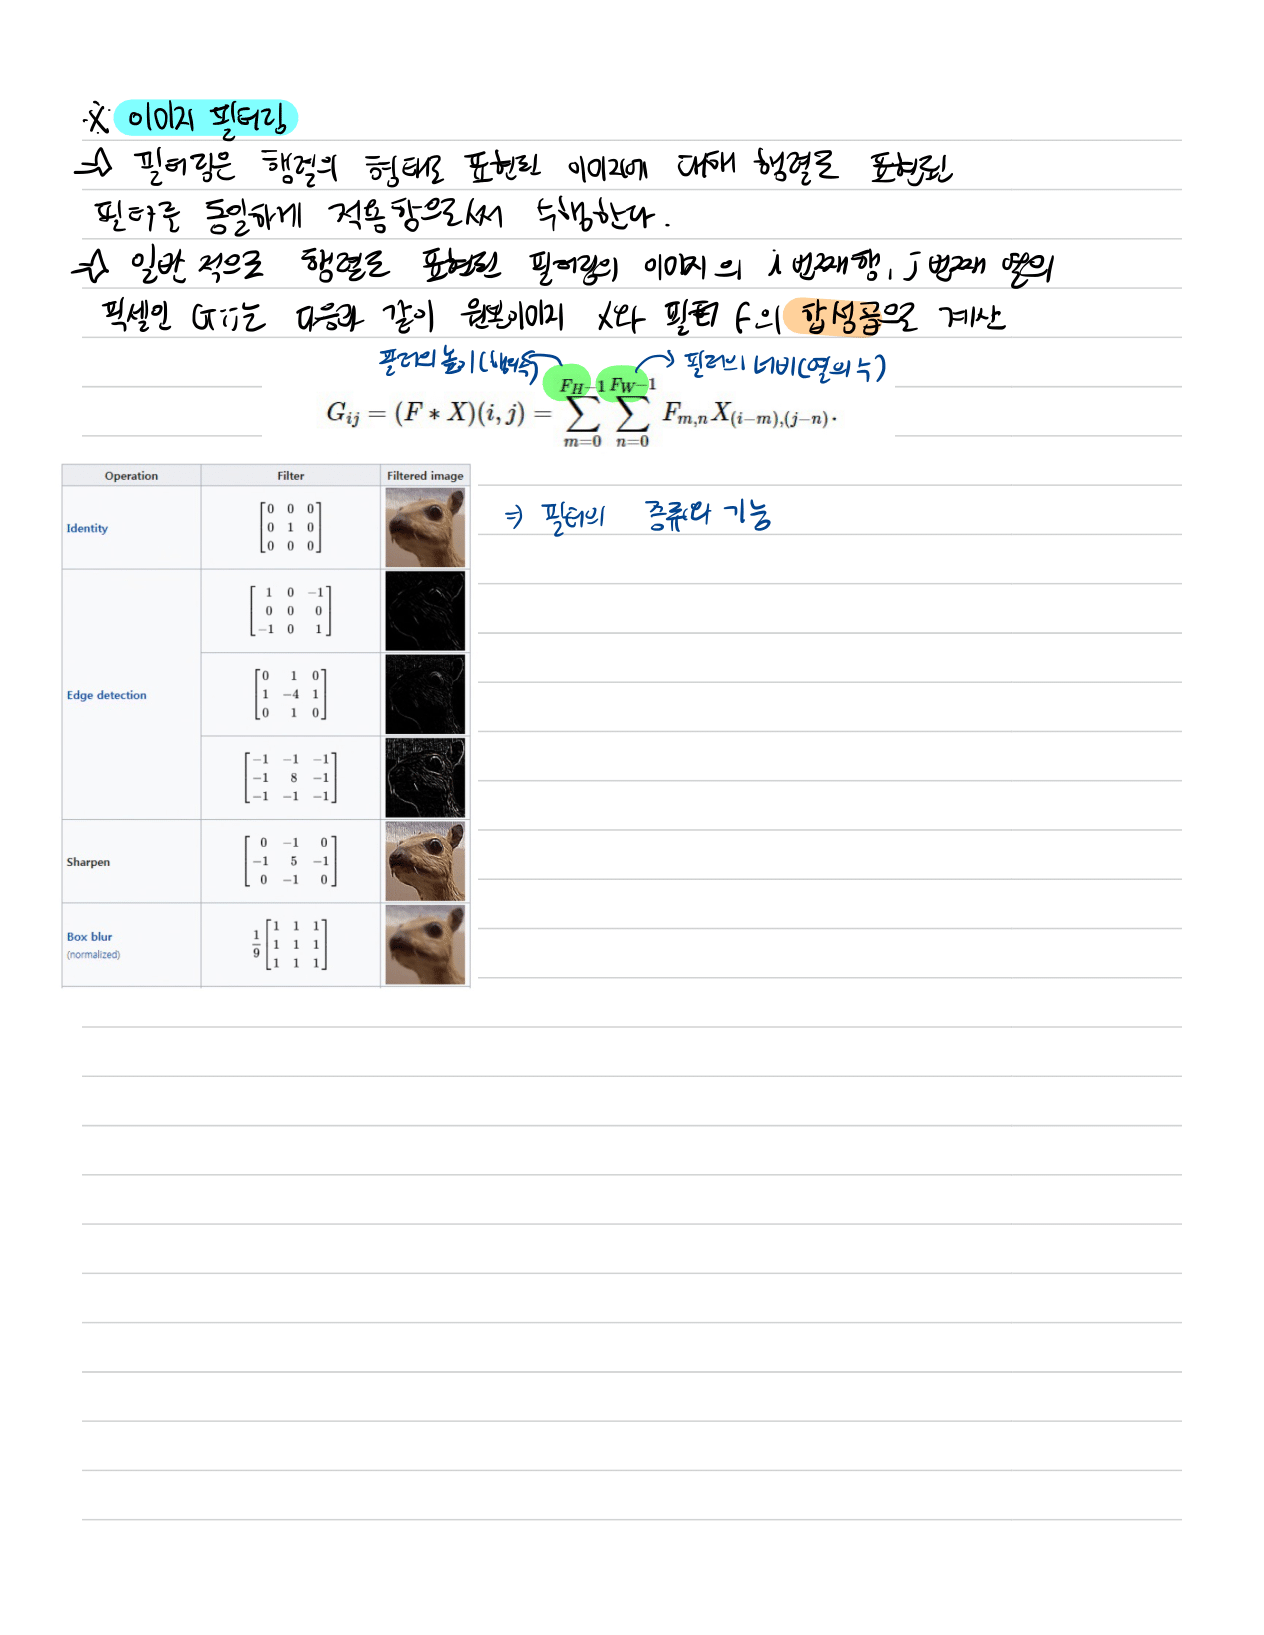 ※ 이미지 필터링
→ 필터링은 행렬의 형태로 표현된 이미지에 대해 행렬로 표현된
필터를 동일하게 적용함으로써 수행한다.
→ 일반적으로 행렬로 표현된 필터링의 이미지의 i번째 행, j번째 열의
픽셀인 Gij는 다음과 같이 원본이미지 X와 필터 F의 합성곱으로 계산
필터의 높이(행의 수) 필터의 너비(열의 수)
G_{ij} = (F * X)(i, j) = \sum_{m=0}^{F_H-1} \sum_{n=0}^{F_W-1} F_{m,n} X_{(i-m),(j-n)}.
Operation Filter Filtered image
⇒ 필터의 종류와 기능
Identity
0 0 0
0 1 0
0 0 0
Edge detection
1 0 −1
0 0 0
−1 0 1
0 1 0
1 −4 1
0 1 0
−1 −1 −1
−1 8 −1
−1 −1 −1
Sharpen
0 −1 0
−1 5 −1
0 −1 0
Box blur
(normalized)
1/9
1 1 1
1 1 1
1 1 1